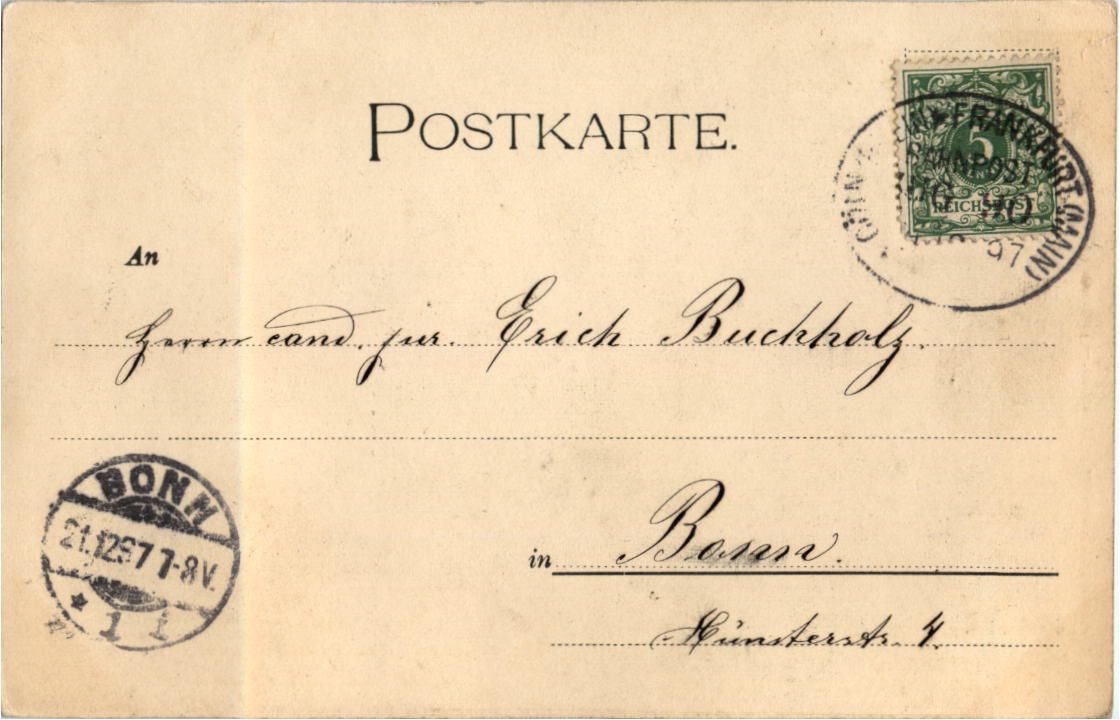 POSTKARTE.
FRANKFURT (MAIN)
5
BAHNPOST
REICHSPOST
97
An
Herrn cand. jur. Erich Buchholz.
BONN
21.12.97 7-8V.
1 i
in Bonn.
Münsterstr. 4